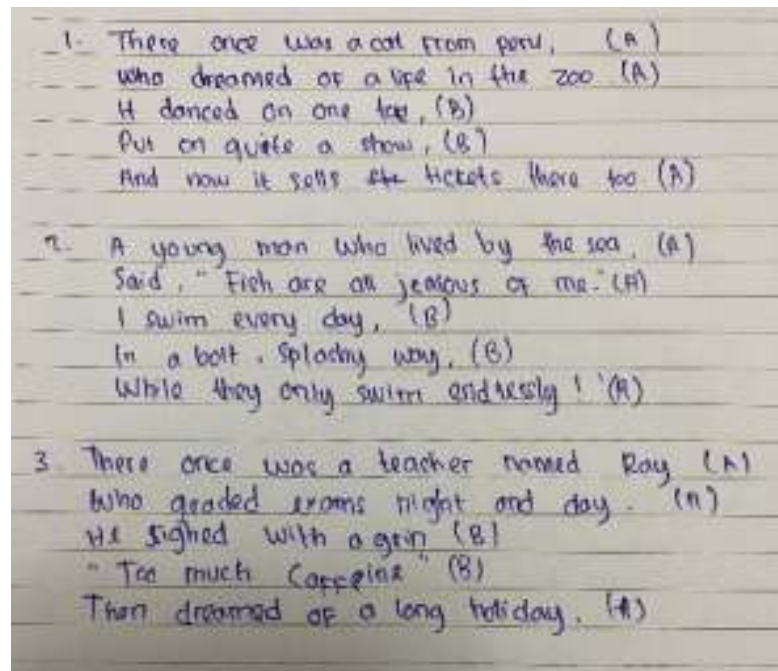 1. There once was a cat from peru, (A)
who dreamed of a life in the zoo (A)
It danced on one toe, (B)
Put on quite a show, (B)
And now it sells tickets there too (A)
2. A young man who lived by the sea, (A)
Said, "Fish are all jealous of me." (A)
I swim every day, (B)
In a splashy way, (B)
While they only swim endlessly! '(A)
3. There once was a teacher named Ray (A)
Who graded exams night and day. (A)
He sighed with a grin (B)
"Too much Caffeine" (B)
Then dreamed of a long holiday. (A)